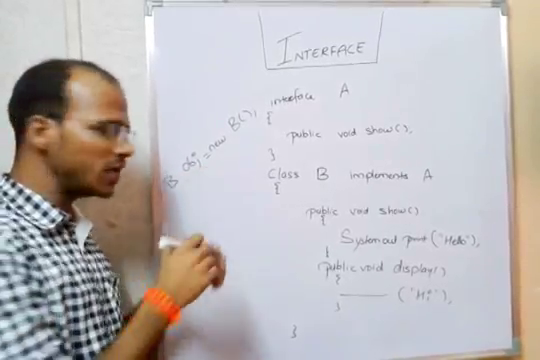 INTERFACE
interface A
{
public void show();
}
B obj = new B();
Class B implements A
{
public void show()
{
System.out.print("Hello");
}
public void display()
{
—— ("Hi");
}
}